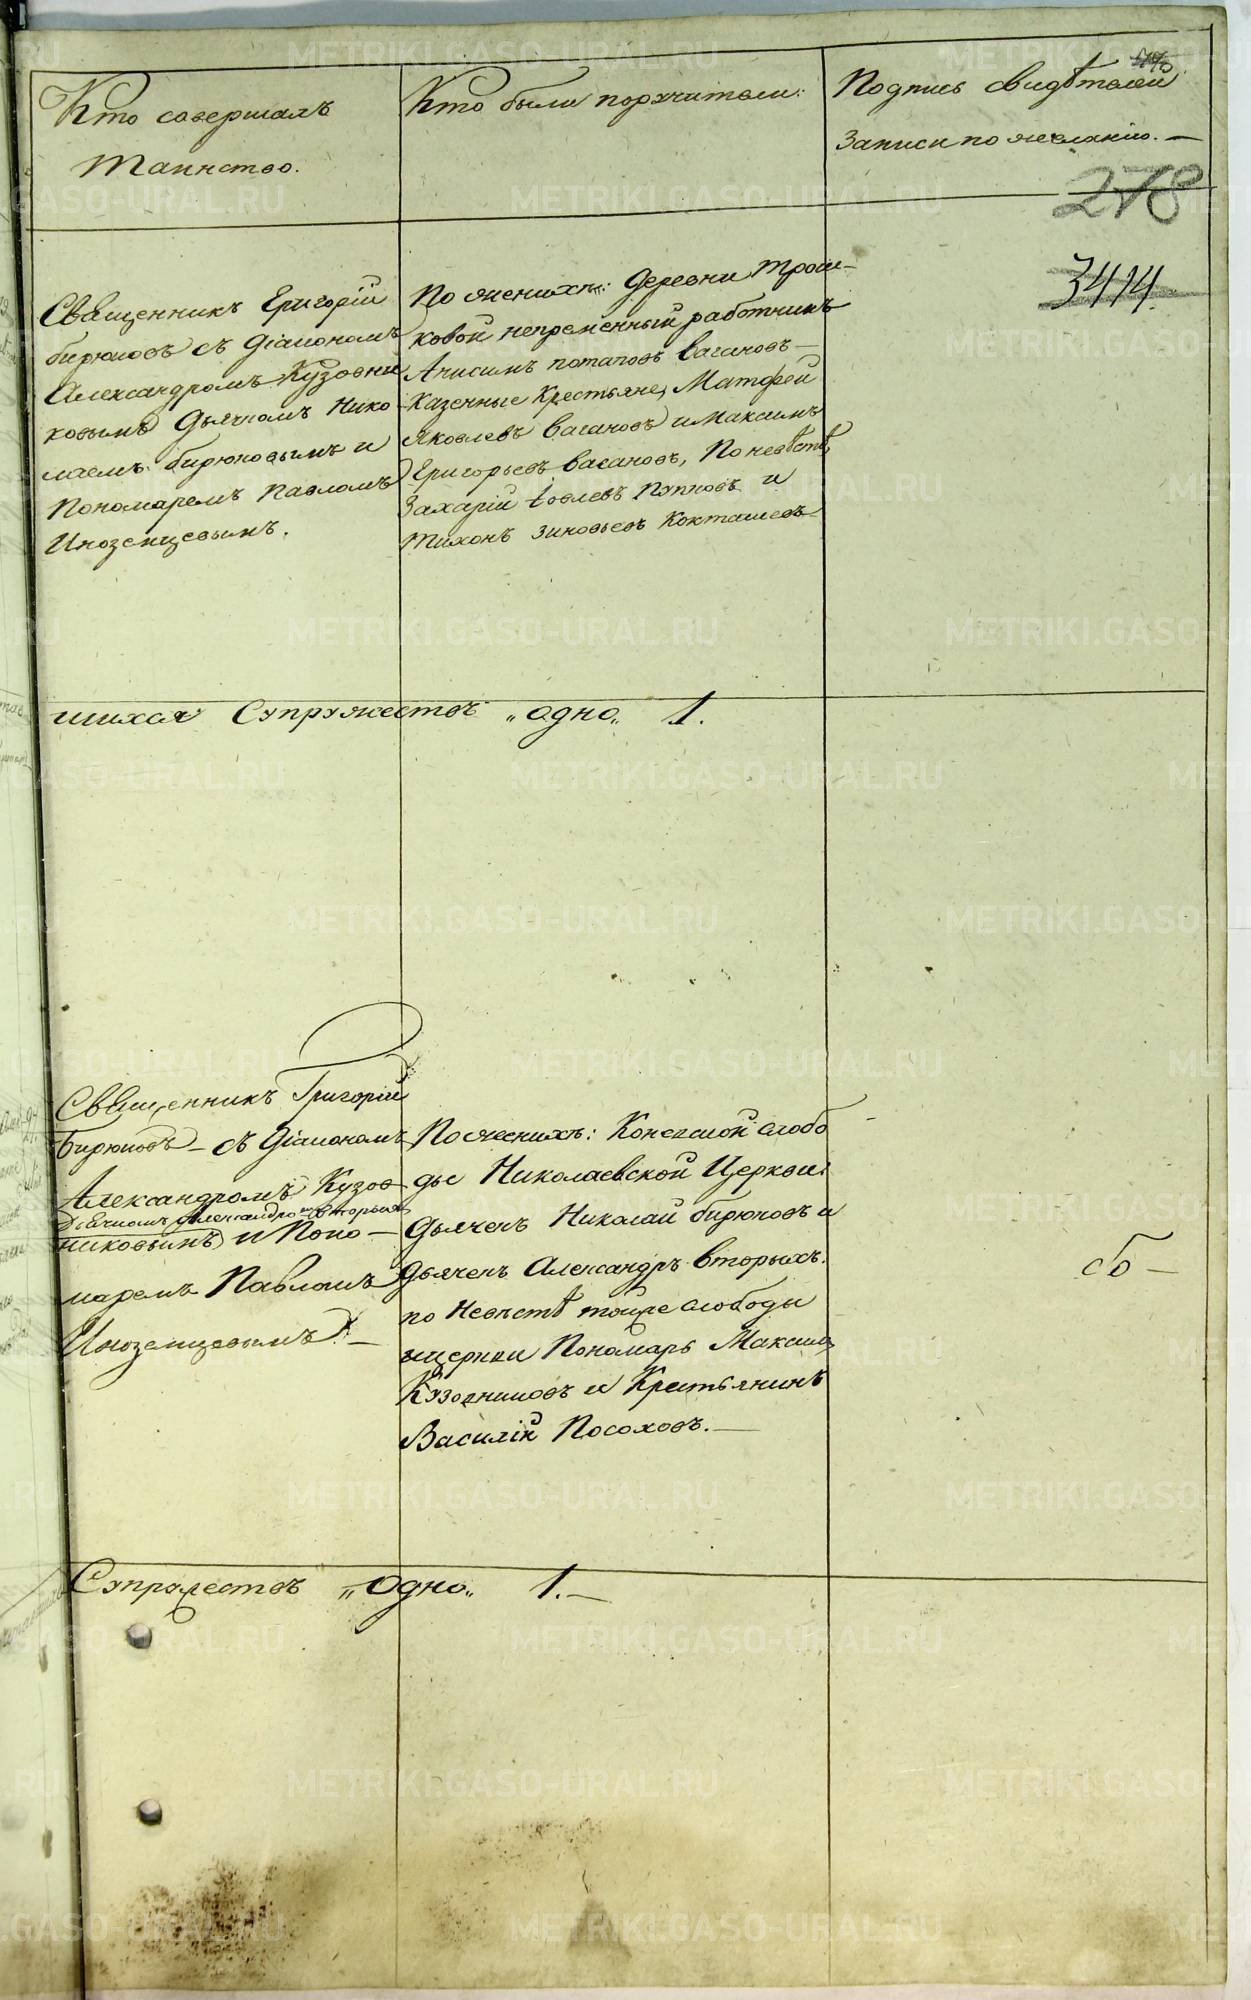 Кто совершалъ
Таинство.
Кто были поручители:
Подпись свидѣтелей
записи по желанію. —
278
3414.
Священникъ Григорій
Бирюковъ съ Діакономъ
Александромъ Кузовни
ковымъ Дьячкомъ Нико
лаемъ Бирюковымъ и
Пономаремъ Павломъ
Иноземцевымъ.
По женихѣ: Деревни Трош-
ковой непременный работникъ
Анисимъ Потаповъ Вагановъ —
Казенные Крестьяне, Матфей
Яковлевъ Вагановъ и Максимъ
Григорьевъ Вагановъ, По невѣстѣ,
Захарій Іовлевъ Пупковъ и
Тихонъ Зиновьевъ Кокташевъ
шихся Супружествъ „одно„ 1.
Священникъ Григорій
Бирюковъ — съ Діакономъ
Александромъ Кузов
Дьячкомъ Александромъ Вторыхъ
никовымъ и Поно —
маремъ Павломъ
Иноземцевымъ. —
По женихѣ: слобо
дѣ Николаевской Церкви:
Дьячекъ Николай Бирюковъ и
Дьячекъ Александръ Вторыхъ.
по Невѣстѣ тойже слободы
и церкви Пономарь Максимъ
Кузовниковъ и Крестьянинъ
Василій Посоховъ. —
Супружествъ „Одно„ 1. —